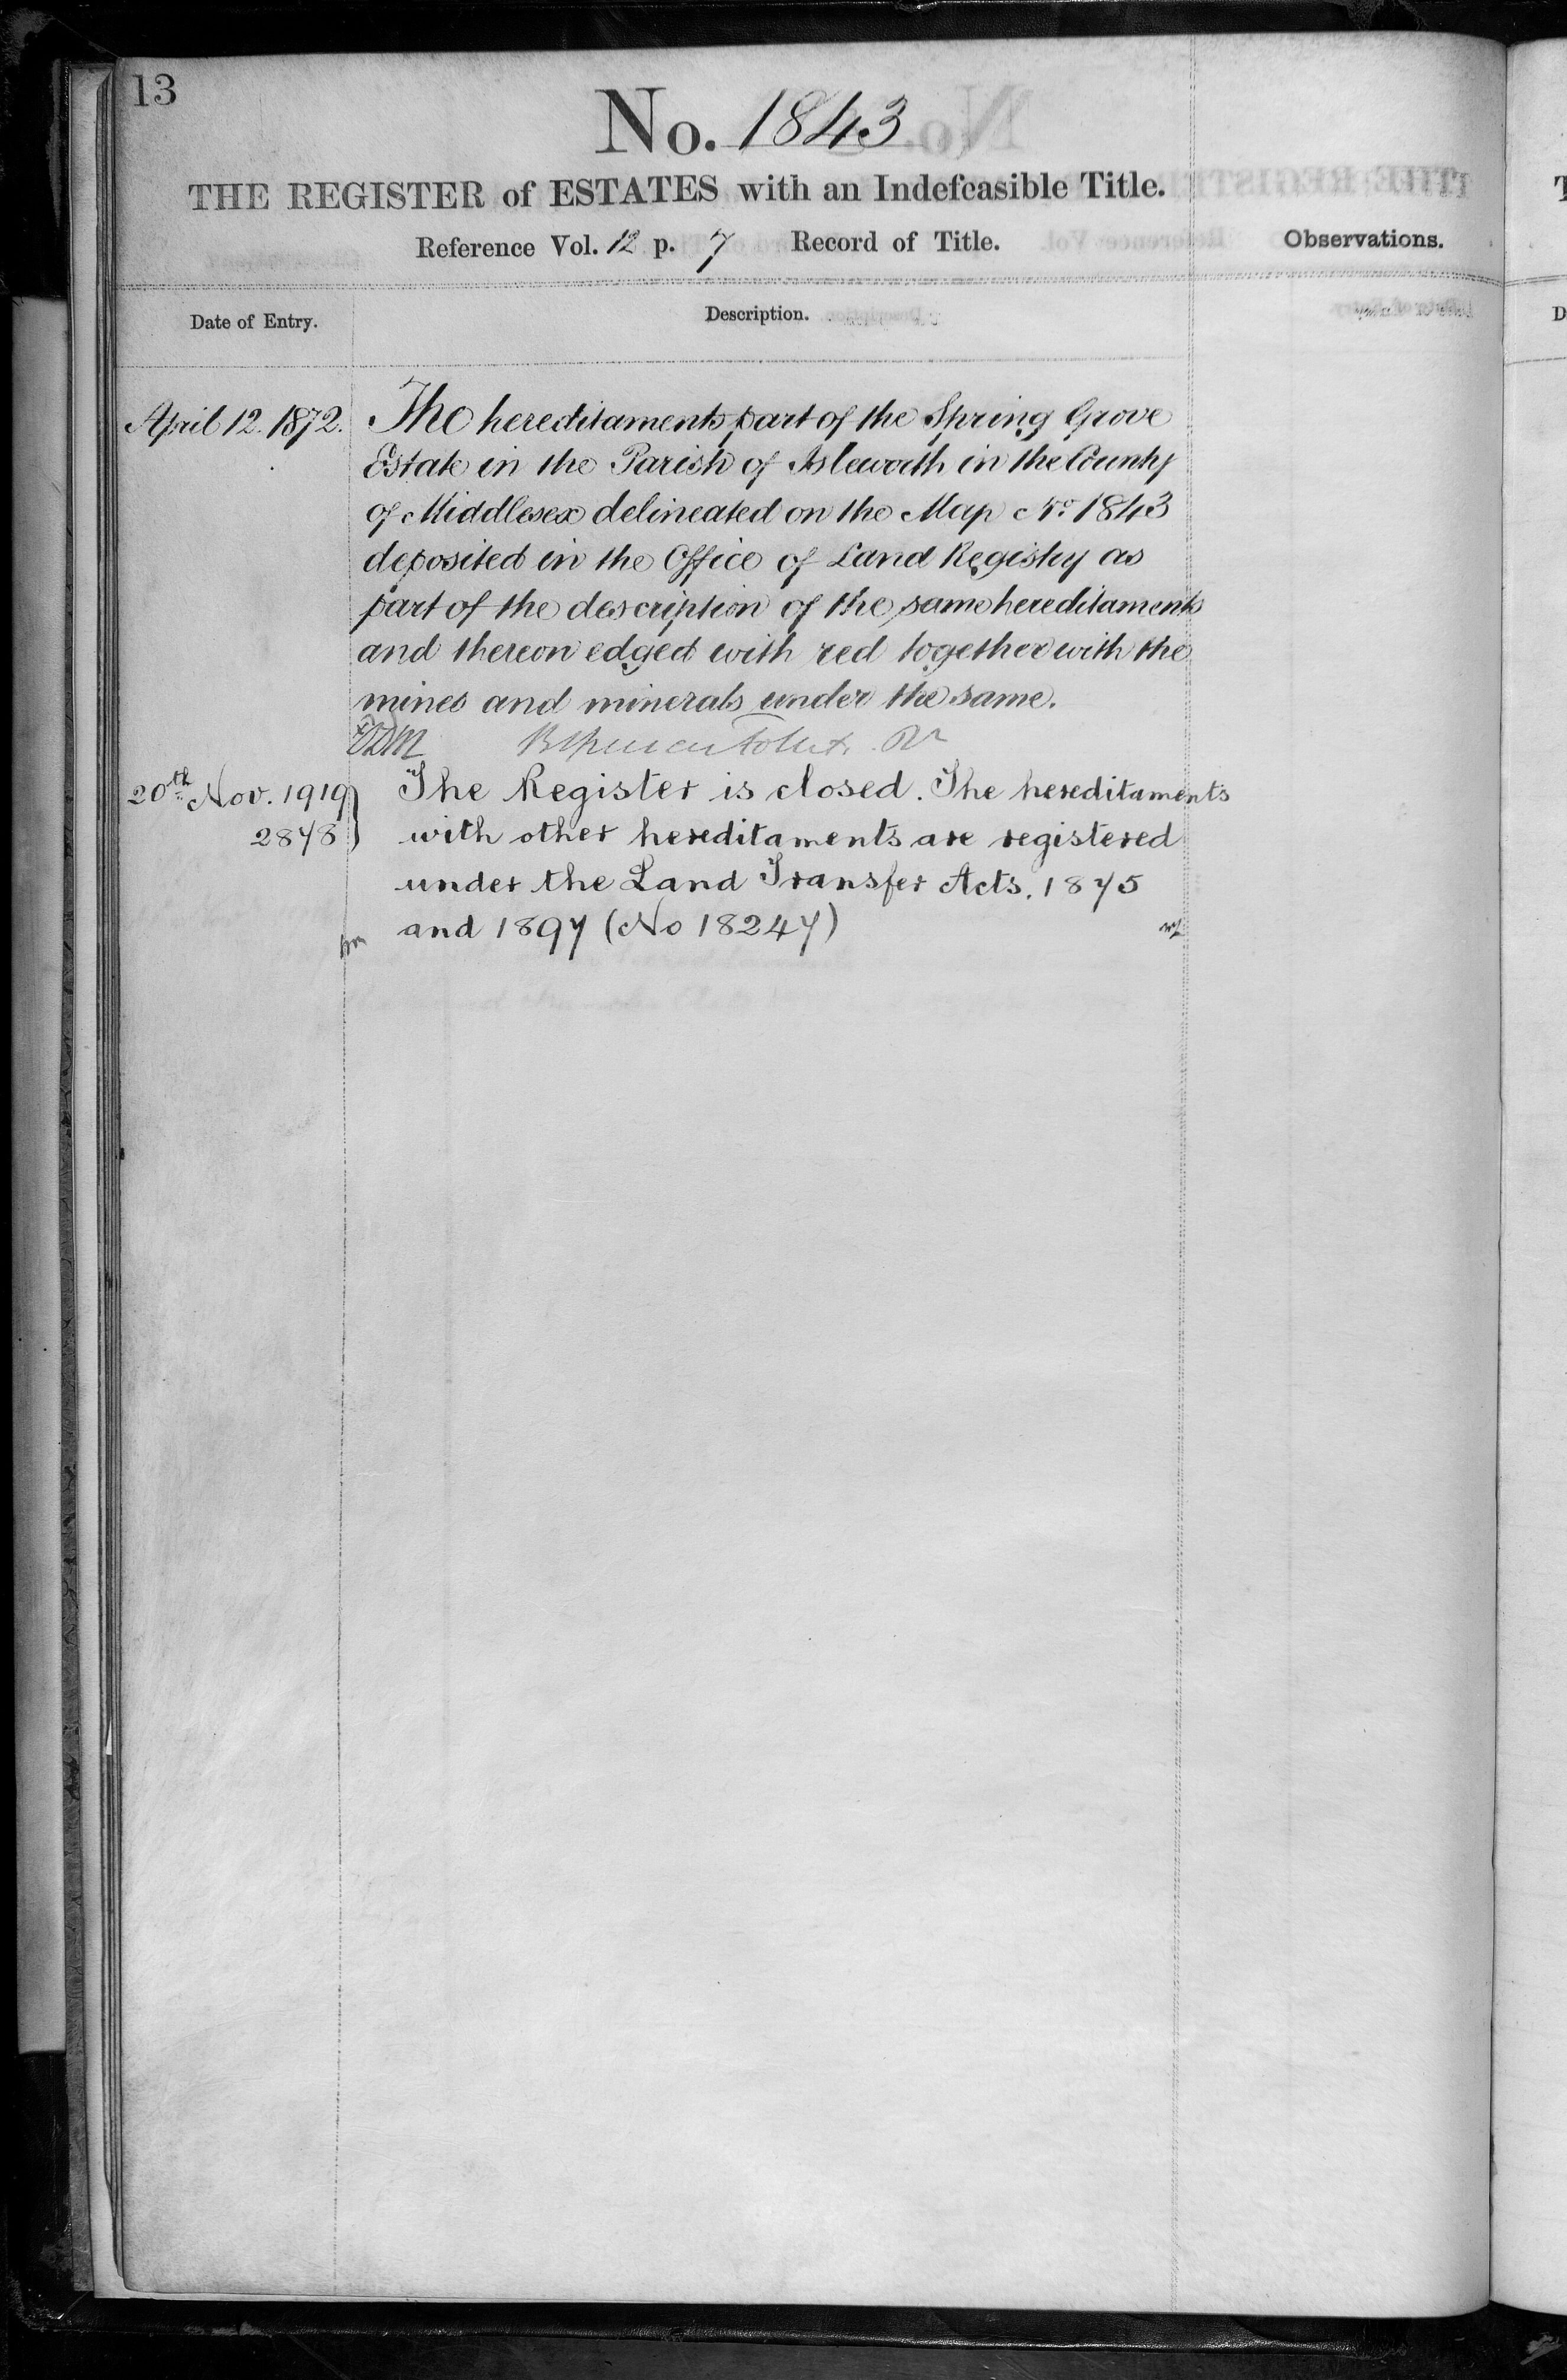 13
No. 1843
THE REGISTER of ESTATES with an Indefeasible Title.
Reference Vol. 12 p. 7 Record of Title.
Observations.
Date of Entry.
Description.
April 12. 1872.
The hereditaments part of the Spring Grove
Estate in the Parish of Isleworth in the County
of Middlesex delineated on the Map No. 1843
deposited in the Office of Land Registry as
part of the description of the same hereditaments
and thereon edged with red together with the
mines and minerals under the same.
20th Nov. 1919
2878
The Register is closed. The hereditaments
with other hereditaments are registered
under the Land Transfer Acts. 1875
and 1897 (No 18247)